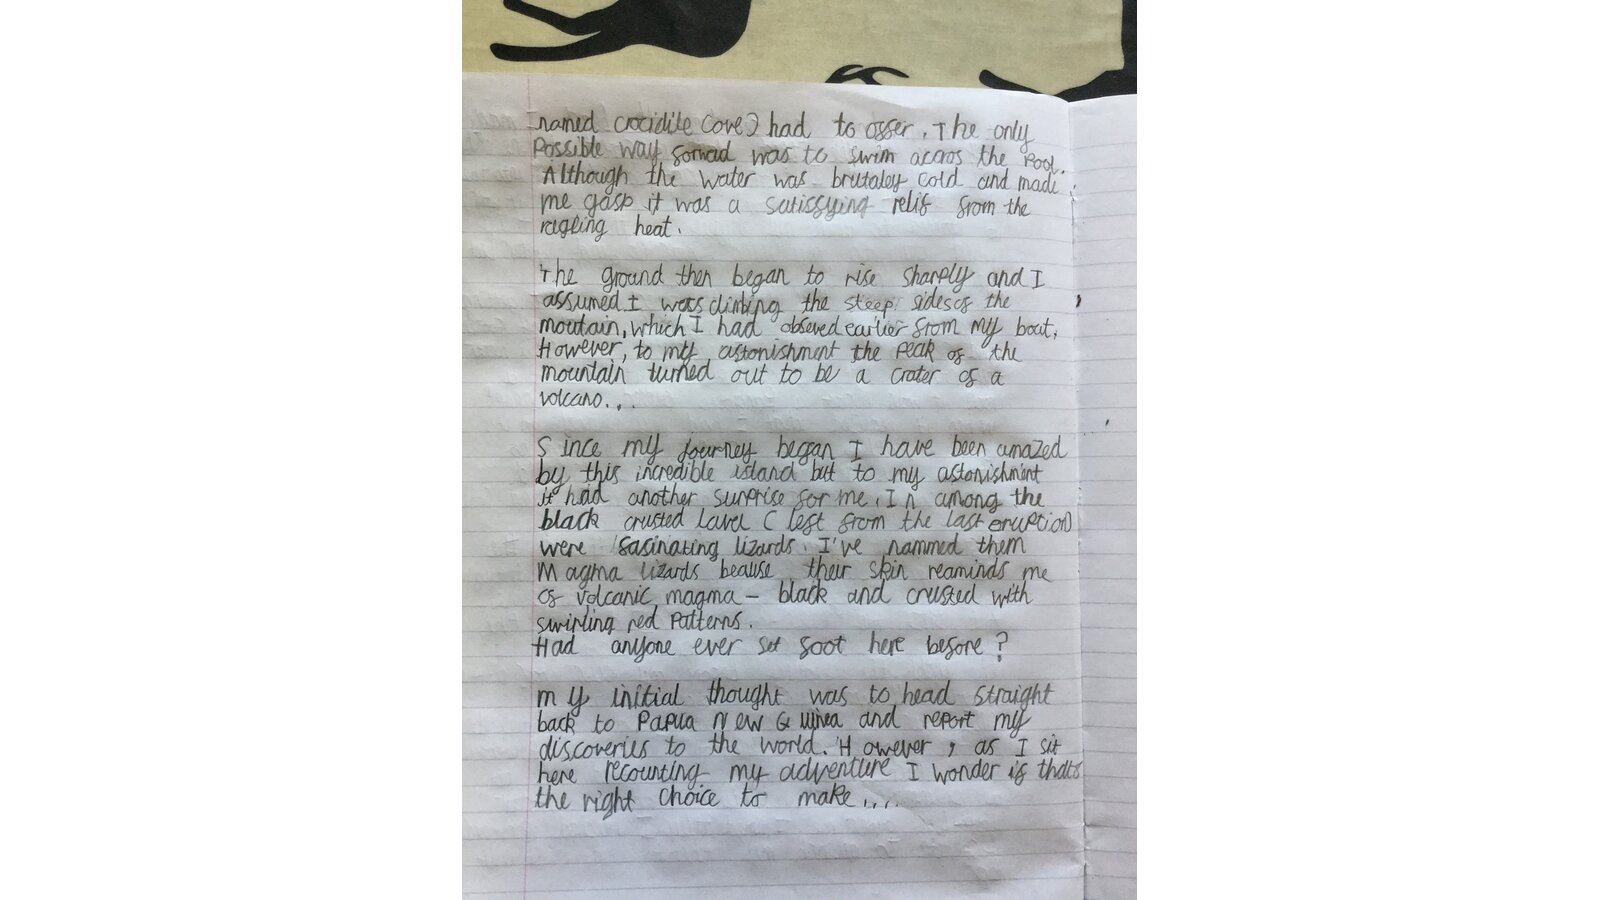 named crocidile Cove) had to offer. The only
Possible way forwad was to swim acros the Pool.
Although the water was brutaley cold and made
me gasp it was a satisfying relif from the
ragling heat.
The ground then began to rise sharply and I
assumed I wass climbing the steep sides of the
moutain, which I had observed earlier from my boat.
However, to my astonishment the peak of the
mountain turned out to be a crater of a
volcano...
Since my journey began I have been amazed
by this incredible island but to my astonishment
it had another surprise for me. In among the
black crusted laval (left from the last eruption)
were fasinating lizards. I've nammed them
Magma lizards beause their skin reaminds me
of volcanic magma - black and crusted with
swirling red patterns.
Had anyone ever set foot here before?
My initial thought was to head straight
back to Papua New Guinea and report my
discoveries to the world. However, as I sit
here recounting my adventure I wonder if thats
the right choice to make....